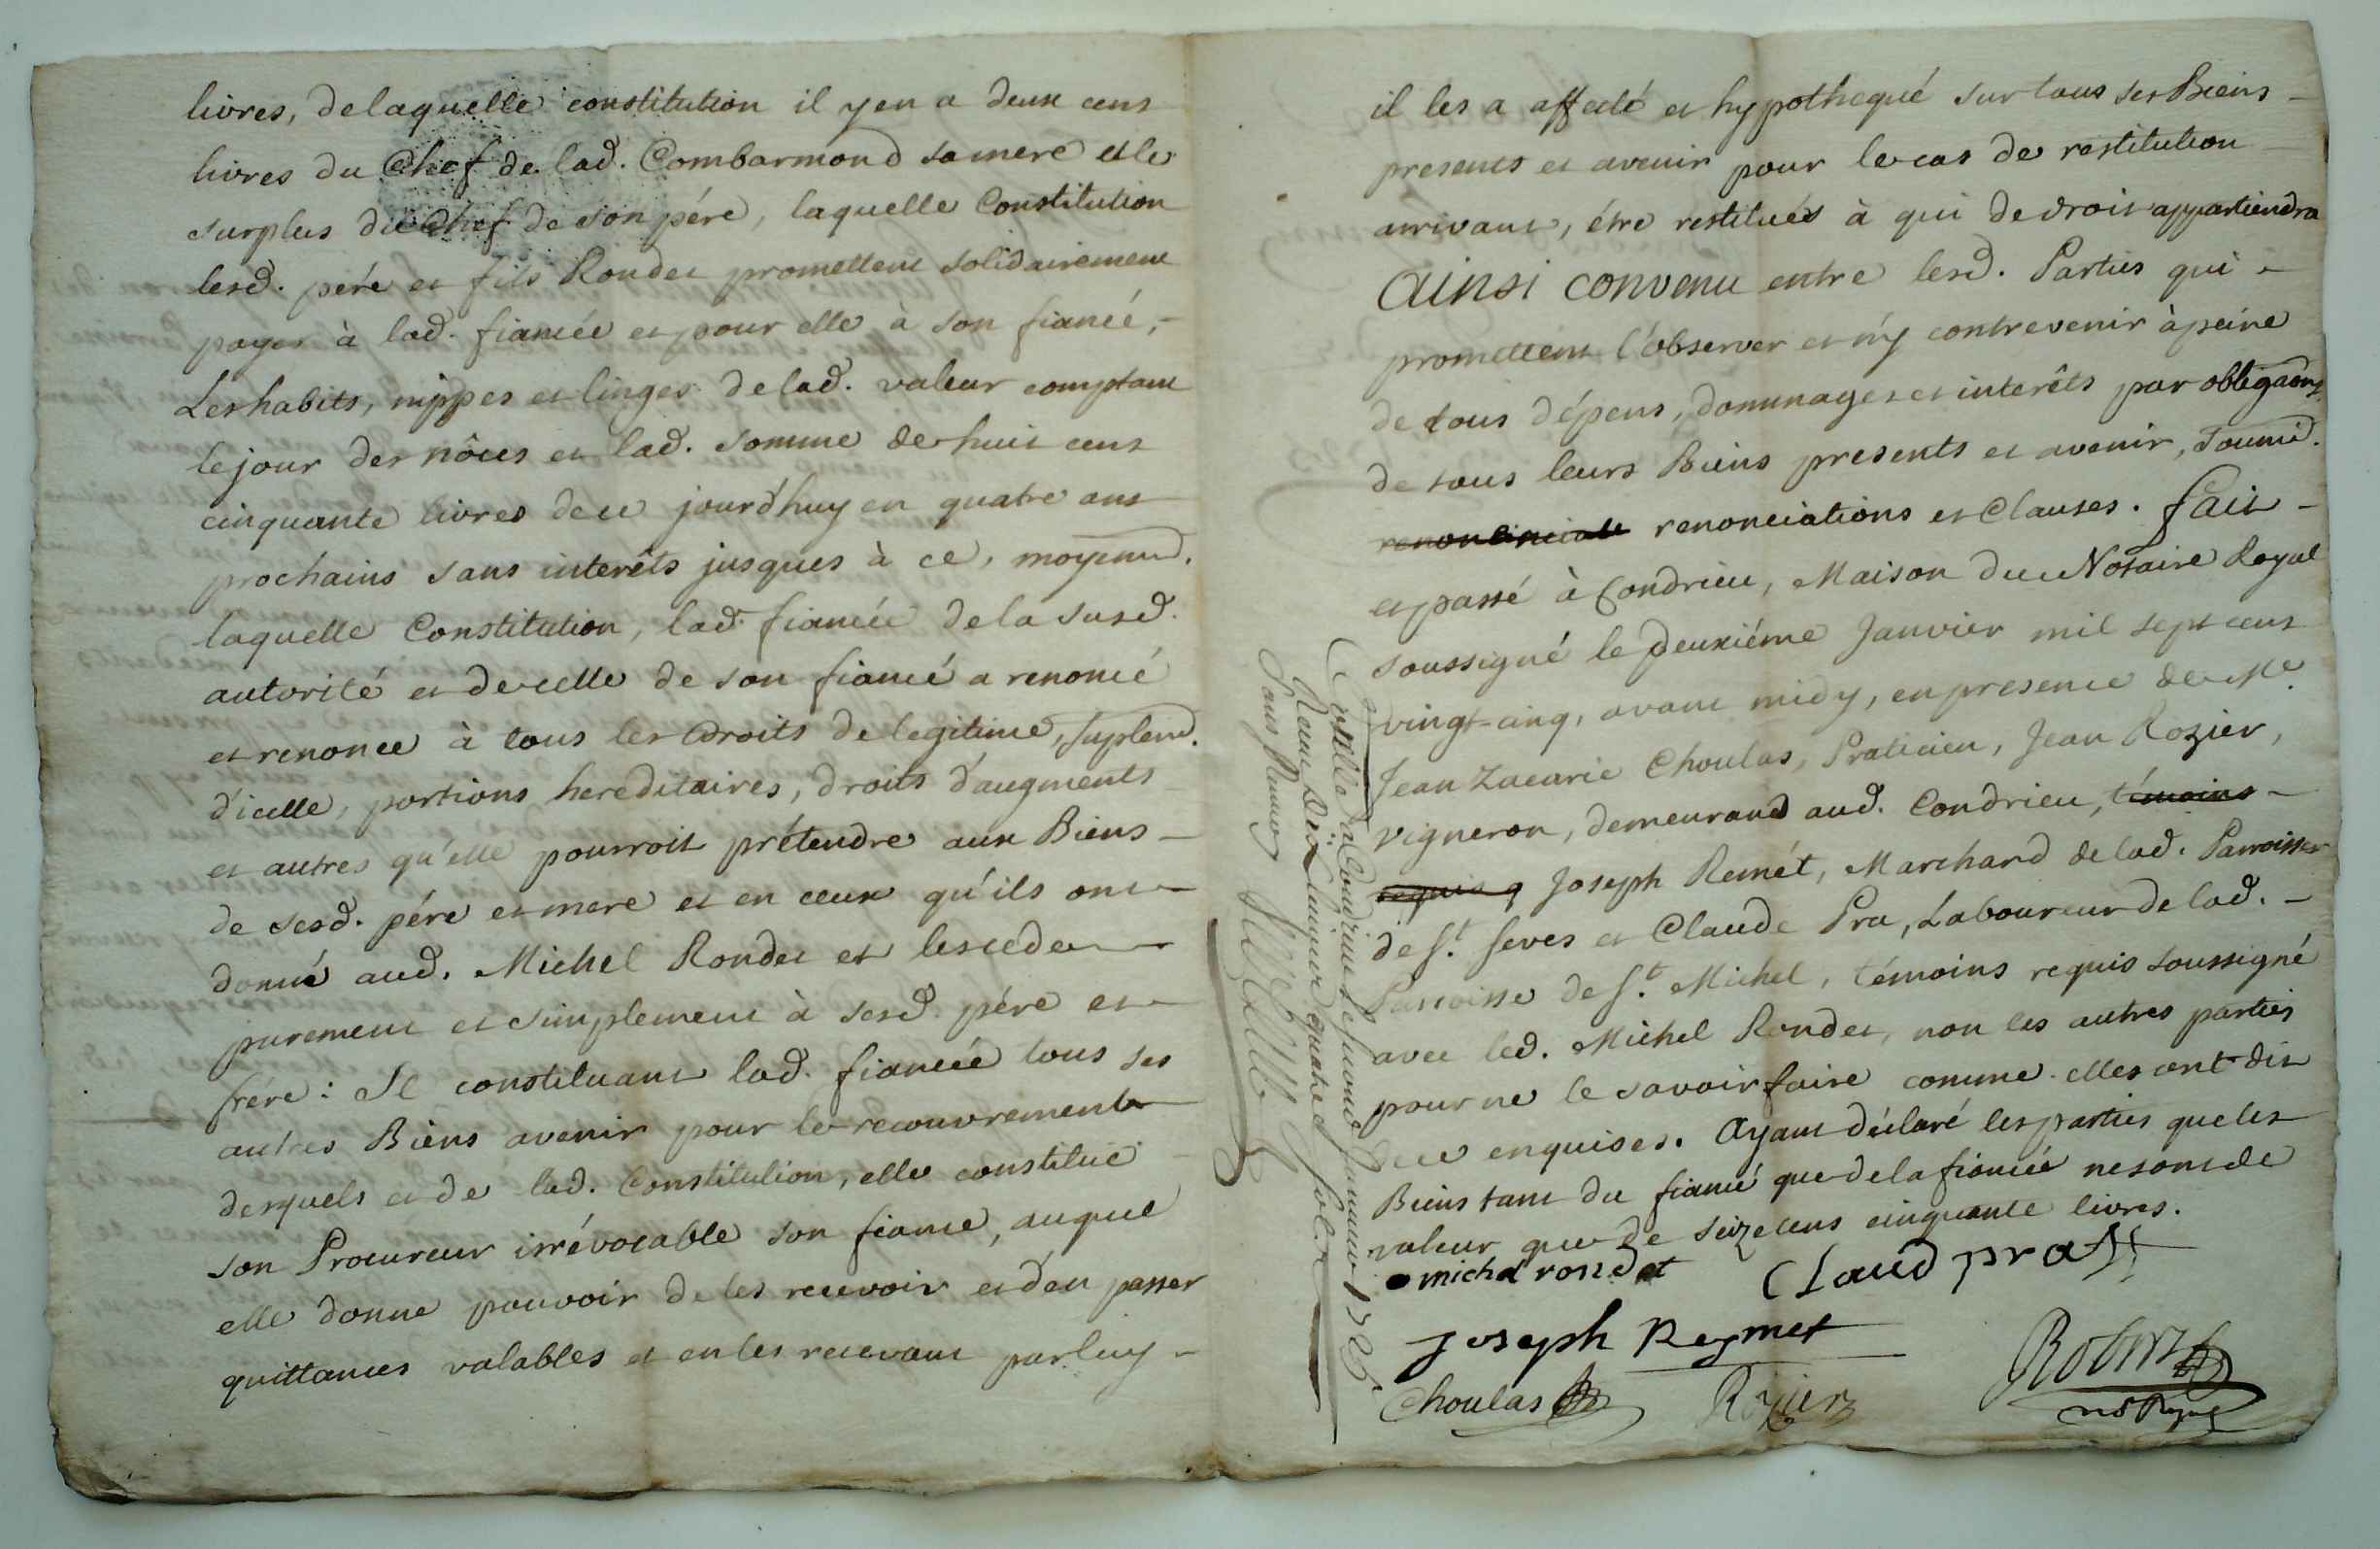 livres, delaquelle constitution il y en a deux cens
livres du Chef de lad. Combarmond sa mere et le
surplus du Chef de son pére, laquelle Constitution
lesd. pére et fils Rondet promettent solidairement
payer à lad. fiancée et pour elle à son fiancé,
Les habits, nippes et linges de lad. valeur comptant
le jour des nôces et lad. somme de huit cens
cinquante livres de ce jourd'huy en quatre ans
prochains sans interêts jusques à ce, moyennd.
laquelle Constitution, lad. fiancée de la susd.
autorité et de celle de son fiancé a renoncé
et renonce à tous les Droits de legitime, suplemd.
d'icelle, portions hereditaires, droits d'augments
et autres qu'elle pourroit prétendre aux Biens
de sesd. pére et mere et en ceux qu'ils ont
donné aud. Michel Rondet et les cede
purement et simplement à sesd. pére et
frére : Se constituant lad. fiancée tous ses
autres Biens avenir pour le recouvrement
desquels et de lad. Constitution, elle constitue
son Procureur irrévocable son fiancé, auquel
elle donne pouvoir de les recevoir et d'en passer
quittances valables et en les recevant par luy
il les a affecté et hypothequé sur tous ses Biens
presents et avenir pour le cas de restitution
arrivant, étre restitués à qui de droit appartiendra
Ainsi convenu entre lesd. Parties qui
promettent l'observer et n'y contrevenir à peine
de tous dépens, dommages et interêts par obligaons
de tous leurs Biens presents et avenir, soumd.
renonciations et Clauses. fait
et passé à Condrieu, Maison du Notaire Royal
soussigné le deuxiéme Janvier mil sept cens
vingt-cinq, avant midy, en presence de Me
Jean Zacarie Choulas, Praticien, Jean Rozier,
vigneron, demeurand aud. Condrieu, témoins
requis Joseph Remét, Marchand de lad. Parroisse
de St. Seves et Claude Pra, Laboureur de lad.
Parroisse de St. Michel, témoins requis soussigné
avec led. Michel Rondet, non les autres parties
pour ne le savoir faire comme elles ont dit
de ce enquises. Ayant déclaré les parties que les
Biens tant du fiancé que de la fiancée ne sont de
valeur que de seize cens cinquante livres.
michel rondet Claud pra
Joseph Reymet
Choulas Rozier Robert
no Royal
Controllé à Condrieu le second Janvier 1725
Receu dix Livres quatre sols